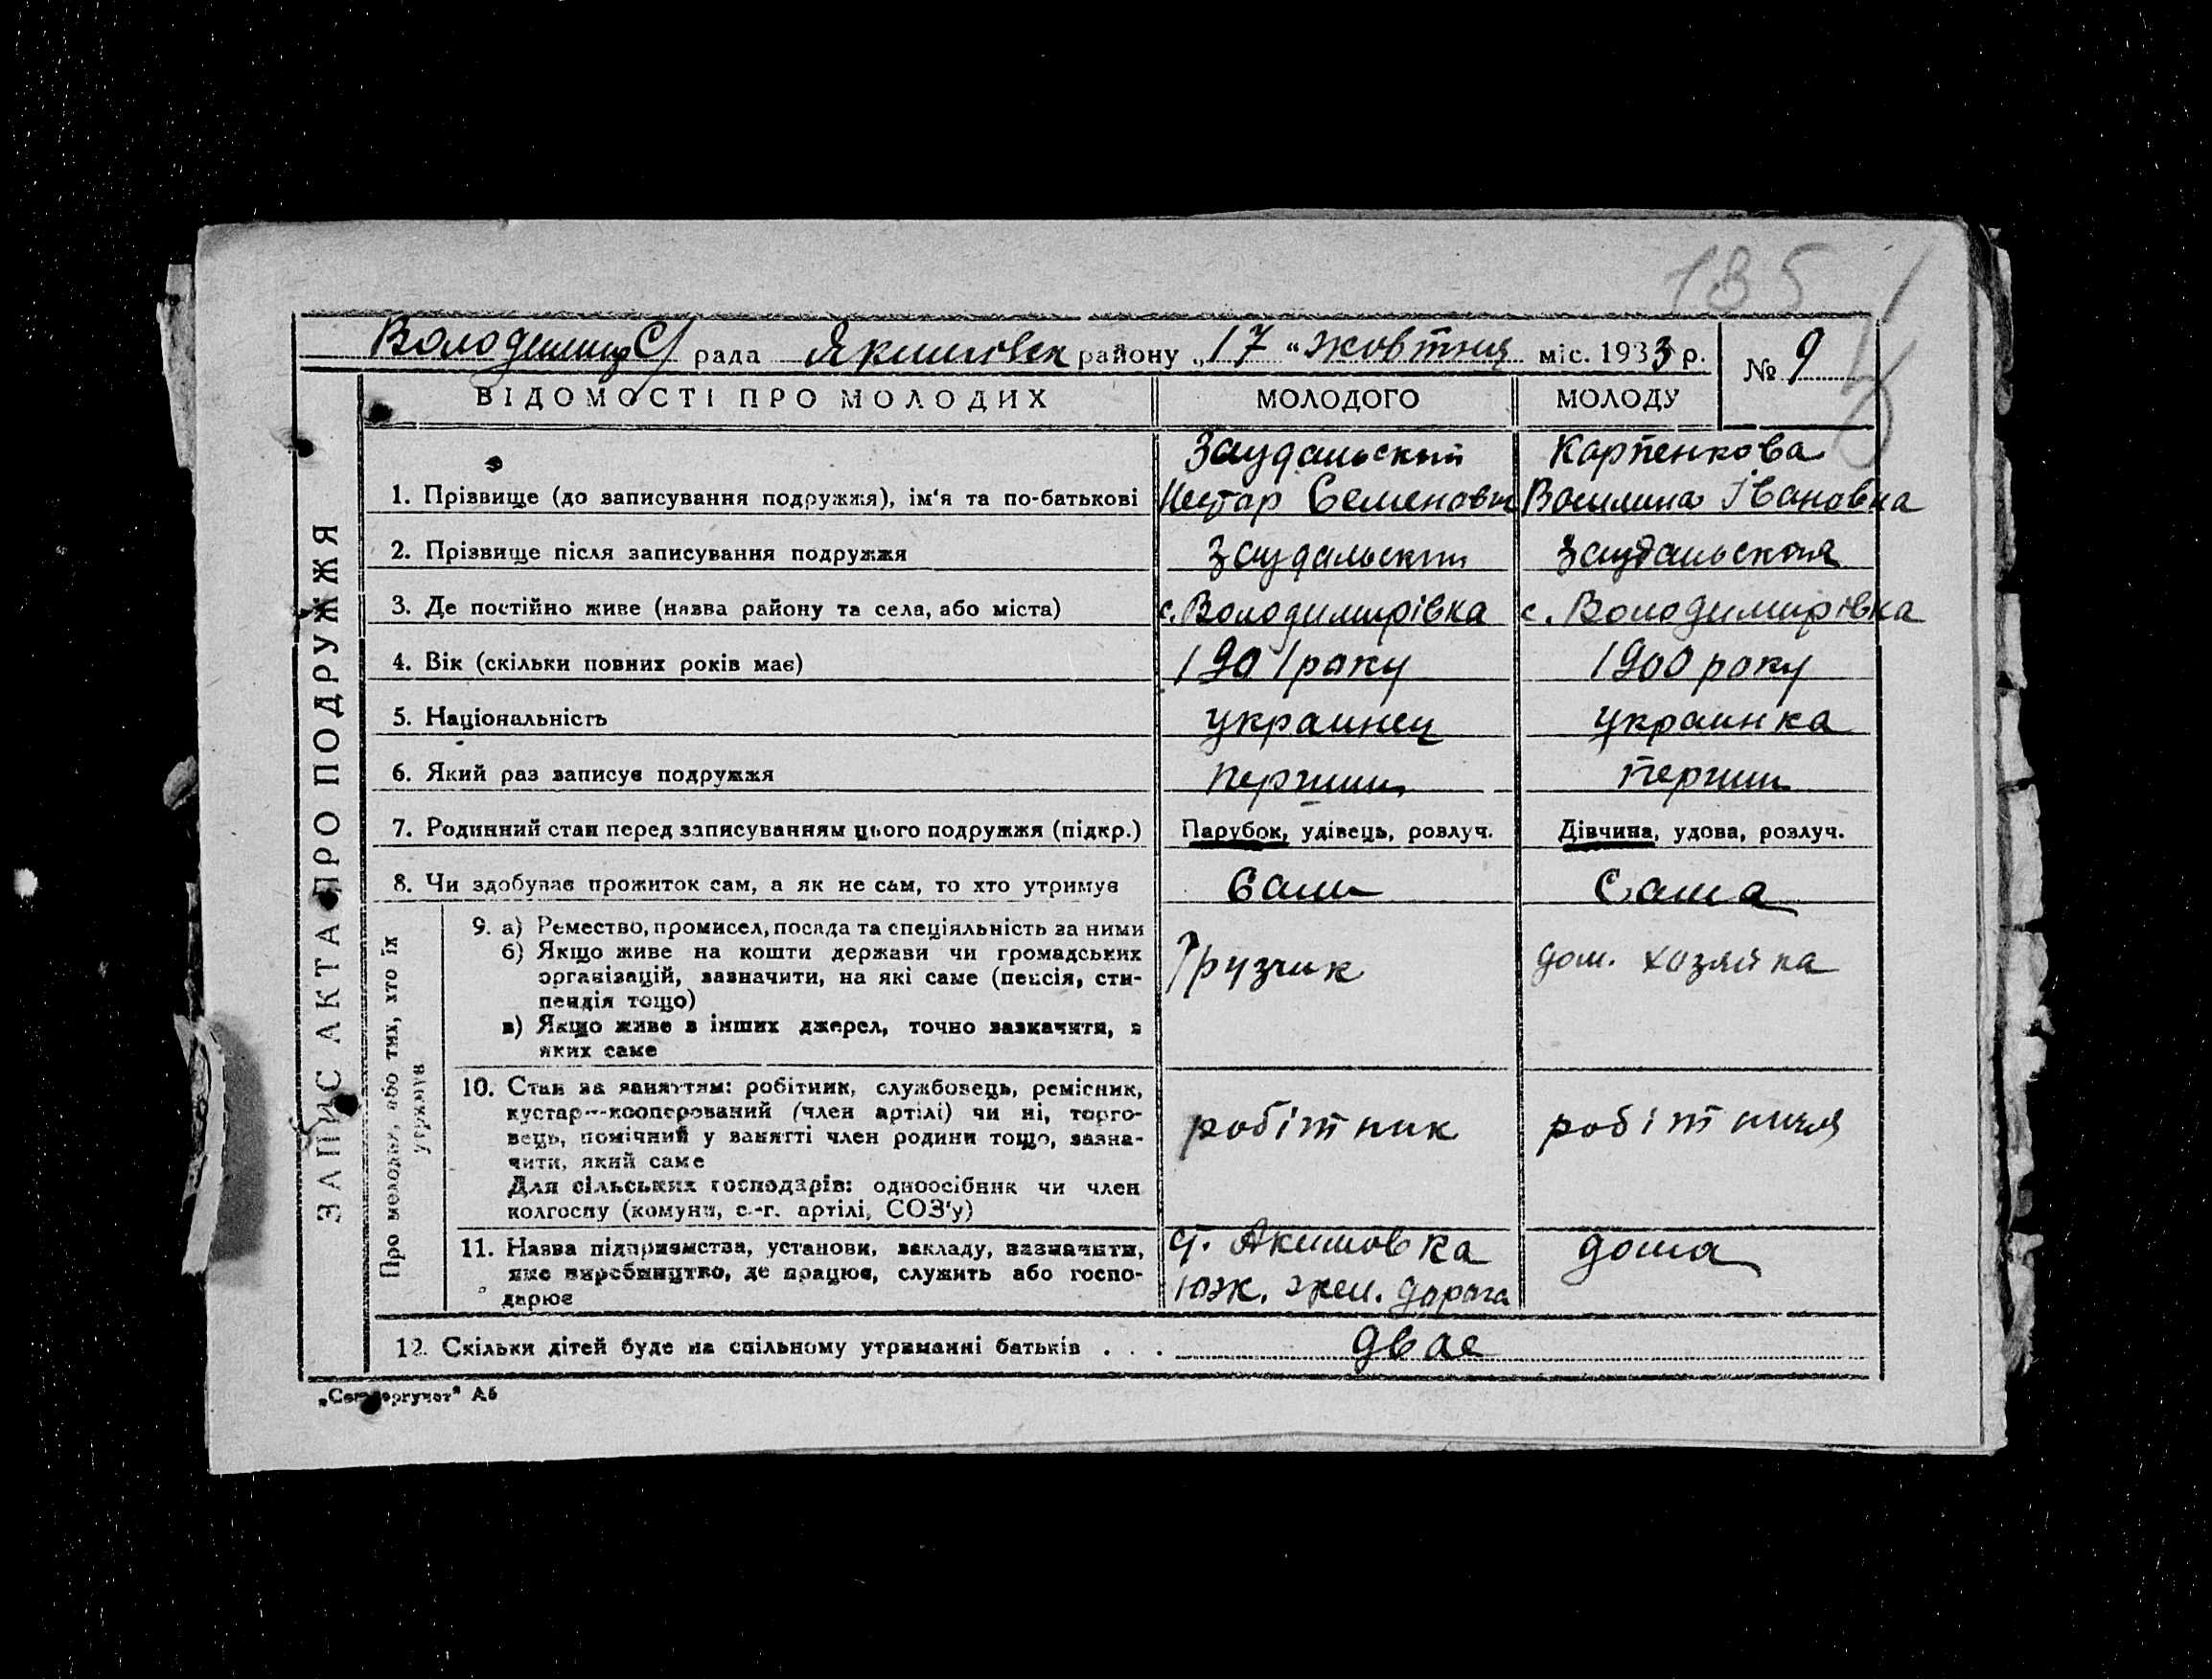 185
Володимир С/ рада Якимовск району „17“ жовтня міс. 1933 р.
№ 9
ЗАПИС АКТА ПРО ПОДРУЖЖЯ
ВІДОМОСТІ ПРО МОЛОДИХ МОЛОДОГО МОЛОДУ
Заудальский Карпенкова
1. Прізвище (до записування подружжя), ім'я та по-батькові Нестор Семенович Василина Івановна
2. Прізвище після записування подружжя Заудальский Заудальская
3. Де постійно живе (назва району та села, або міста) с. Володимирівка с. Володимирівка
4. Вік (скільки повних років має) 1901 року 1900 року
5. Національність украинец украинка
6. Який раз записує подружжя перший перший
7. Родинний стан перед записуванням цього подружжя (підкр.) Парубок, удівець, розлуч. Дівчина, удова, розлуч.
8. Чи здобуває прожиток сам, а як не сам, то хто утримує Сам Сама
Про молодих, або тих, хто їх
утримує
9. а) Ремество, промисел, посада та спеціяльність за ними
б) Якщо живе на кошти держави чи громадських
організацій, зазначити, на які саме (пенсія, сти-
пендія тощо)
Грузчик дом. хозяйка
в) Якщо живе з інших джерел, точно зазначити, з
яких саме
10. Стан за заняттям: робітник, службовець, ремісник,
кустар—кооперований (член артілі) чи ні, торго-
вець, помічний у занятті член родини тощо, зазна-
чити, який саме
робітник робітниця
Для сільських господарів: одноосібник чи член
колгоспу (комуни, с.-г. артілі, СОЗ'у)
11. Назва підприємства, установи, закладу, зазначити, ст. Акимовка дома
яке виробництво, де працює, служить або госпо- Юж. жел. дорога
дарює
12. Скільки дітей буде на спільному утриманні батьків . . . двое